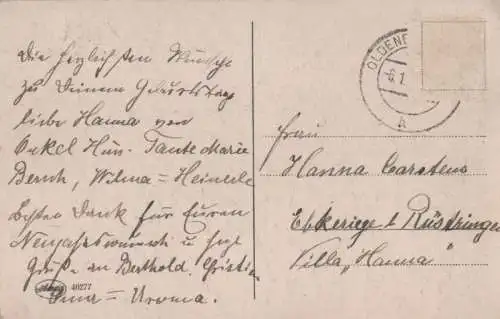 Die herzlichsten Wünsche
zu Deinem Geburtstag
liebe Hanna von
Onkel Hin. Tante Marie
Bernh, Wilma = Heinerle
besten Dank für Euren
Neujahrswunsch u. hzl
Grüße an Berthold. Christian
Oma = Uroma.
40277
OLDENB
6.1
Frau
Hanna Carstens
b Rüstringen
Villa „Hanna"